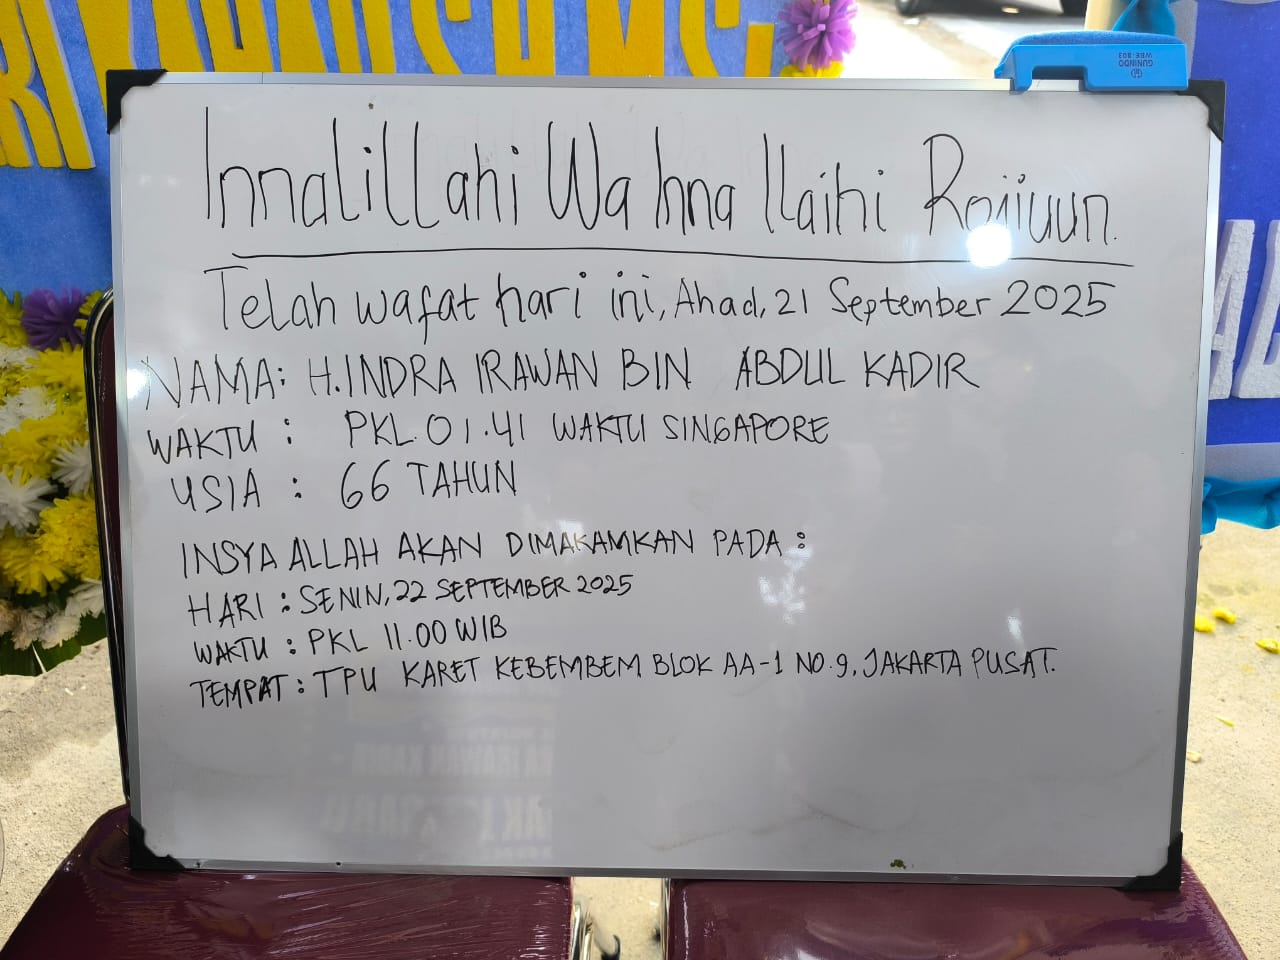 GUNINDO
WBE-803
Innalillahi Wa Inna Ilaihi Rojiuun.
Telah wafat hari ini, Ahad, 21 September 2025
NAMA: H. INDRA IRAWAN BIN ABDUL KADIR
WAKTU : PKL. 01.41 WAKTU SINGAPORE
USIA : 66 TAHUN
INSYA ALLAH AKAN DIMAKAMKAN PADA :
HARI : SENIN, 22 SEPTEMBER 2025
WAKTU : PKL 11.00 WIB
TEMPAT : TPU KARET KEBEMBEM BLOK AA-1 NO.9, JAKARTA PUSAT.